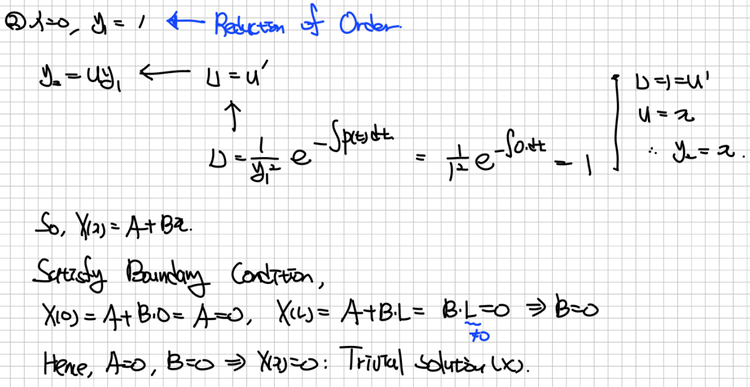 ② λ=0, y₁ = 1 ← Reduction of Order.
y₂ = uy₁ ← U = u'
↑
U = 1/y₁² e^(-∫p(t)dt) = 1/1² e^(-∫0·dt) = 1
U=1=u'
u = x
∴ y₂ = x.
So, X(x) = A+Bx.
Satisfy Boundary Condition,
X(0) = A+B·0 = A=0, X(L) = A+B·L = B·L=0 ⇒ B=0
≠0
Hence, A=0, B=0 ⇒ X(x)=0 : Trivial solution (X).